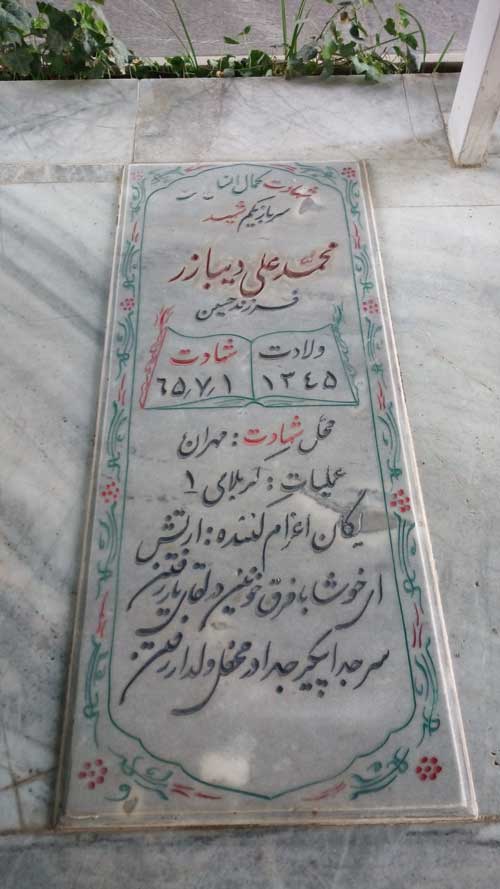 شهادت کمال انسان است
سرباز یکم شهید
محمد علی دیبازر
فرزند حسین
ولادت ۱۳۴۵
شهادت ۶۵٫۷٫۱
محل شهادت : مهران
عملیات : کربلای ۱
یگان اعزام کننده : ارتش
ای خوشا با فرق خونین در لقای یار رفتن
سر جدا پیکر جدا در محفل دلدار رفتن